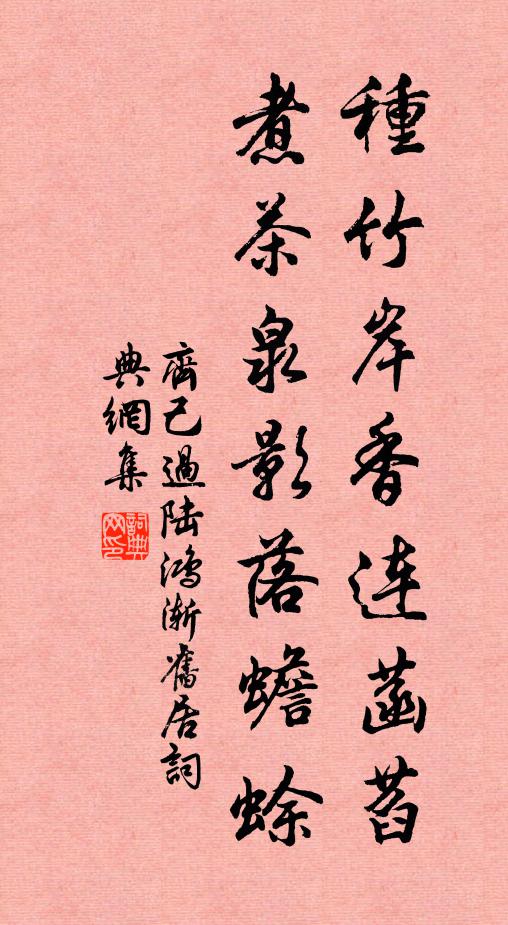 種竹岸香連菡萏
煮茶泉影落蟾蜍
齊己過陸鴻漸舊居詞
典網集
詞典网印